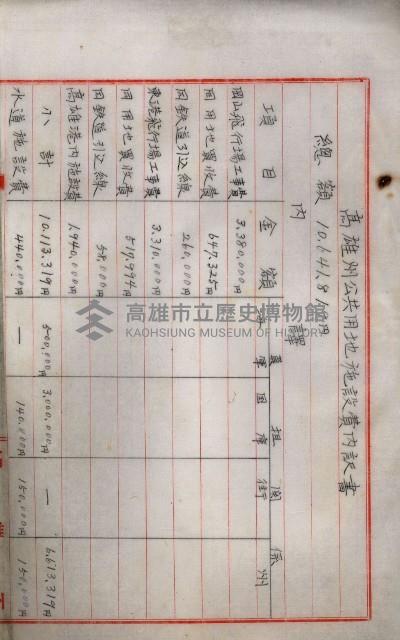 高雄州公共用地施設費內訳書
總額 10,641,8
內譯
項目 金額 担 関係
軍 国庫 街 州
岡山飛行場工事費 3,380,000円
同用地買收費 647,325円
同鉄道引込線 260,000円
東港飛行場工事費 3,310,000円
同用地買收費 517,994円
同鉄道引込線 58,000円
高雄港內施設費 1,940,000円
小計 10,113,319円 500,000円 3,000,000円 — 6,613,319円
水道施設費 440,000円 — 140,000円 150,000円 150,000円
高雄市立歷史博物館
KAOHSIUNG MUSEUM OF HISTORY